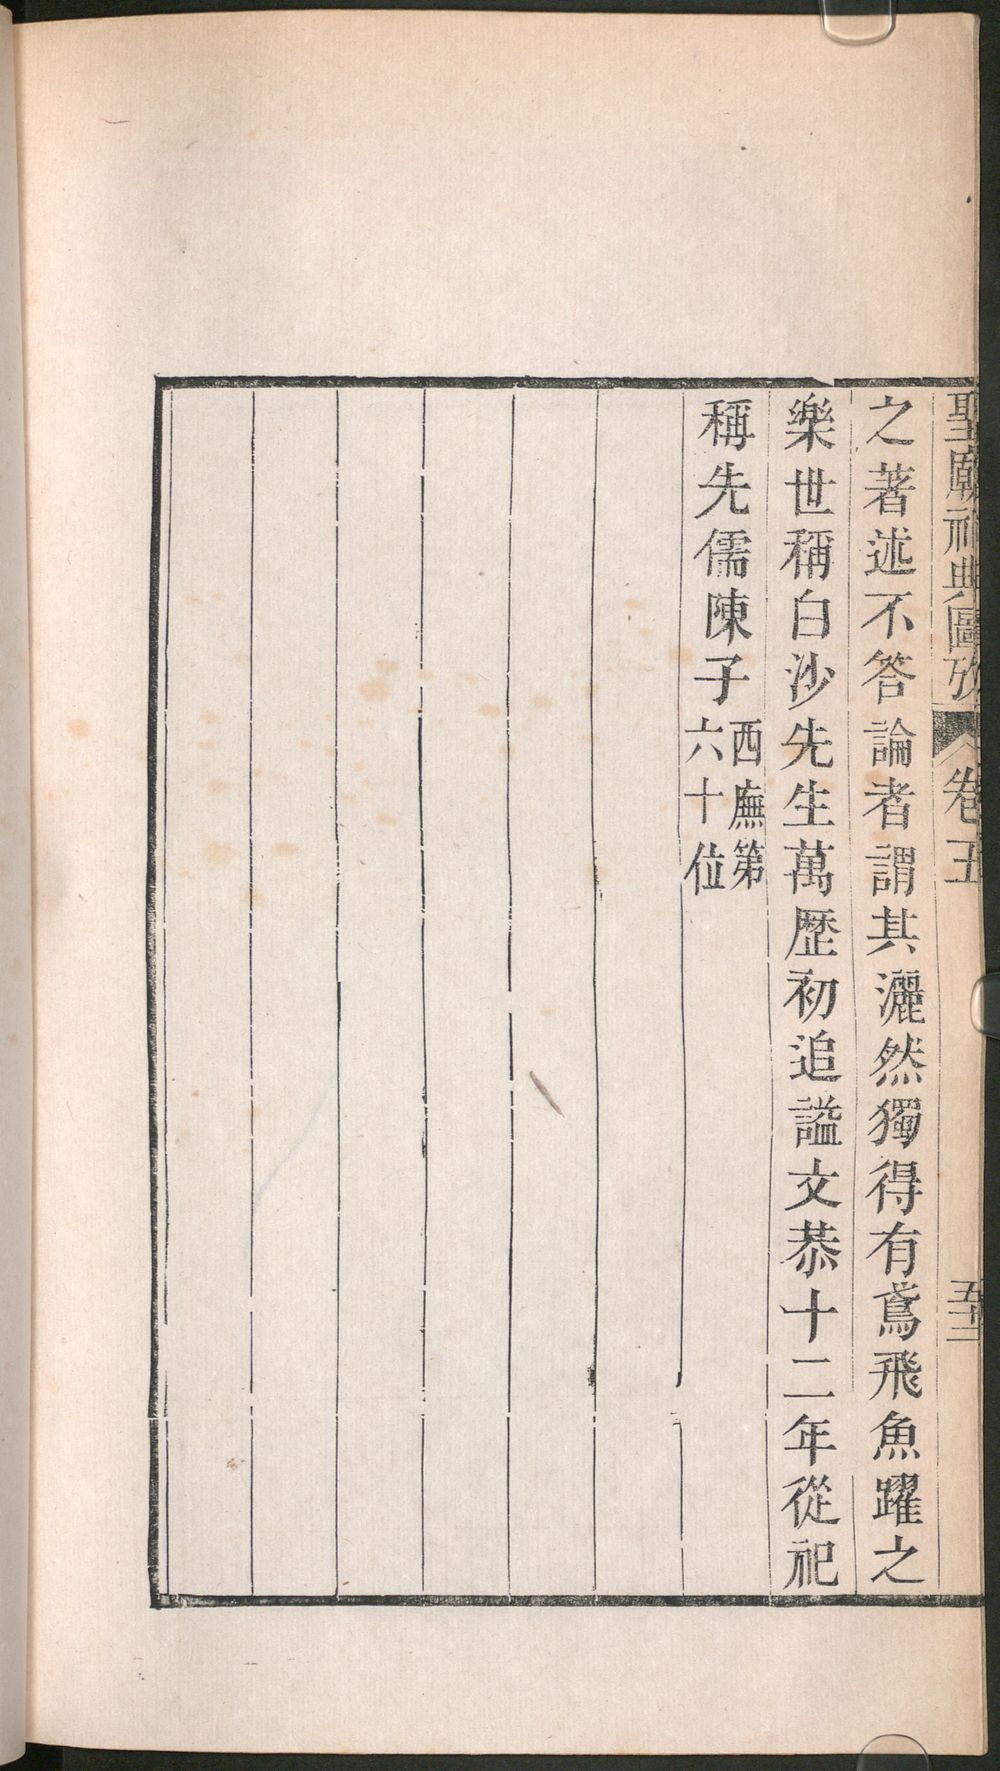 聖廟祀典圖攷 卷五 五十二
之著述不答論者謂其灑然獨得有鳶飛魚躍之
樂世稱白沙先生萬歷初追謚文恭十二年從祀
稱先儒陳子西廡第
六十位